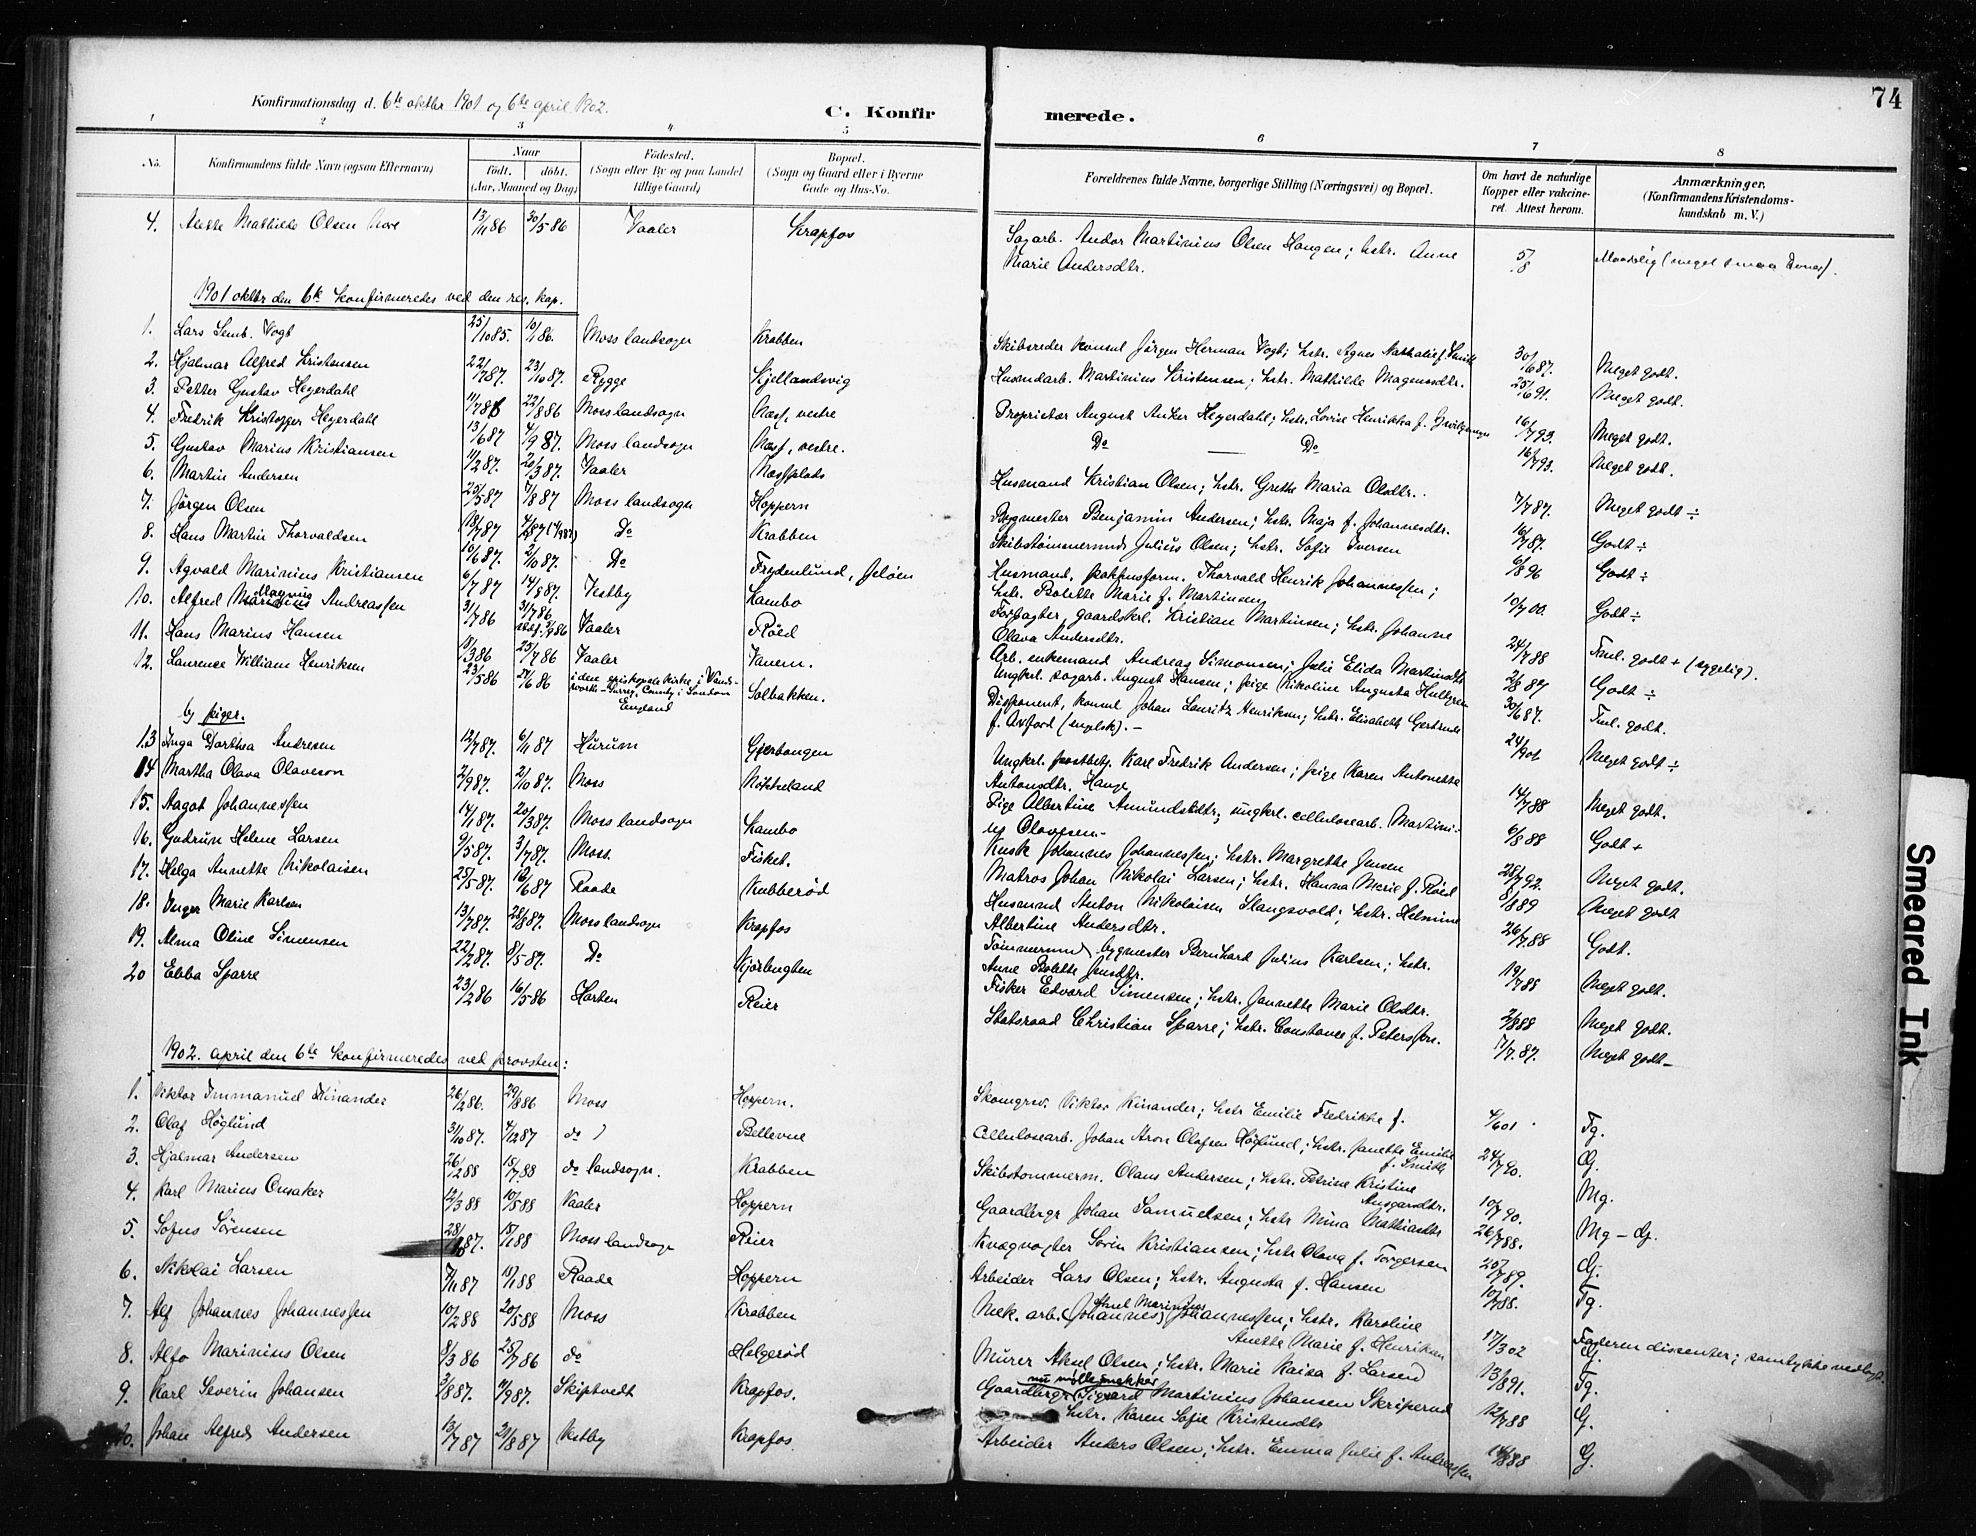 74
Konfirmationsdag d. 6te oktbr 1901 og 6te april 1902.
C. Konfirmerede.
1 2 3 4 5 6 7 8
No.
Konfirmandens fulde Navn (ogsaa Efternavn)
Naar
født. døbt.
(Aar, Maaned og Dag)
Fødested.
(Sogn eller By og paa Landet
tillige Gaard)
Bopæl.
(Sogn og Gaard eller i Byerne
Gade og Hus-No.
Forældrenes fulde Navne, borgerlige Stilling (Næringsvei) og Bopæl.
Om havt de naturlige
Kopper eller vakcine-
ret. Attest herom.
Anmærkninger.
(Konfirmandens Kristendoms-
kundskab m. V.)
4. Alette Mathilde Olsen 13/11 86 30/5 86 Vaaler Krapfos
Sagarb. Andor Martinius Olsen Haugen; hstr. Anne
Marie Andersdtr.
1901 oktbr den 6te konfirmeredes ved den res. kap.
1. Lars Semb. Vogt 25/10 85. 10/1 86. Moss landsogn Krabben
Skibsreder konsul Jørgen Herman Vogt; hstr. Agnes Nathalie f. Smith 30/1 687. Meget godt.
2. Hjalmar Alfred Kristensen 22/1 787. 23/10 87. Rygge Kjellandsvig
Husmdarb. Martinius Kristensen; hstr. Mathilde Magnusdtr. 25/6 91. Meget godt.
3. Petter Gustav Heyerdahl 11/7 86 22/8 86 Moss landsogn Næs, vestre
Proprietær August Anker Heyerdahl; hstr. Lovise Henrikka f. 16/7 93. Meget godt.
4. Fredrik Kristoffer Heyerdahl 13/6 87 4/9 87. Moss landsogn Næs, vestre.
Do — Do 16/7 93. Meget godt.
5. Gustav Marius Kristiansen 11/1 287. 20/3 87. Vaaler Næssplads
Husmand Kristian Olsen; hstr. Grethe Maria Olsdtr. 7/7 87. Meget godt ÷
6. Martin Andersen 25/5 87 7/8 87 Moss landsogn Hoppern
Bygmester Benjamin Andersen; hstr. Maja f. Johannesdtr. 16/7 87. Godt ÷
7. Jørgen Olsen 18/7 87 Do Krabben
Skibstømmermd Julius Olsen; hstr. Sofie Iversen 6/8 96 Godt ÷
8. Hans Martin Thorvaldsen 10/6 87. 2/10 87. Do Frydenlund, Jeløen
Husmand, Thorvald Henrik Johannessen;
hstr. Bolette Marie f. Martinsen 10/7 00. Godt ÷
9. Agvald Marinius Kristiansen 6/7 87 14/8 87. Vestby Kambo
Forpagter, gaardskrl. Kristian Martinsen; hstr. Johanne
Olava Andersdtr. 24/7 88 Tml. godt + (sygelig).
10. Alfred Magnus Andreassen 31/7 86 31/7 86 Vaaler Røed
Arb. enkemand Andreas Simonsen; Julie Elida Martinsdtr 2/8 87 Godt ÷
11. Hans Marius Hansen 18/3 86 25/7 86 Vaaler Vanem.
Ungkrl. sagarb. August Hansen; pige Nikoline Augusta Hultgren 30/6 87. Tml. godt.
12. Laurence William Henriksen 23/5 86 27/6 86 i den episkopale kirke i Wands-
worth - Surrey, County i London
England Solbakken.
Disponent, konsul Johan Lauritz Henriksen; hstr. Elisabeth Gertrude
f. Axford (engelsk). - 24/9 01 Meget godt ÷
b) piger.
13 Inga Dorthea Andresen 12/7 87. 6/11 87 Hurum Gjerbongen
Ungkrl. postbetj. Karl Fredrik Andersen; pige Karen Antonette
Antonsdtr. Hauge 14/7 88 Meget godt.
14 Martha Olava Olavesen 2/9 87. 2/10 87. Moss Nøkkeland
Pige Albertine Amundsdtr; ungkrl. cellulosearb. Martini-
us Olavesen.- 6/8 88 Godt +
15. Aagot Johannessen 14/1 87. 20/3 87. Moss landsogn Kambo
Kusk Johannes Johannessen; hstr. Margrethe Jensen 28/7 92. Meget godt.
16. Gudrun Helene Larsen 9/5 87. 3/7 87. Moss. Fisket.
Matros Johan Nikolai Larsen; hstr. Hanna Marie f. Røed 8/8 89 Meget godt
17. Helga Annette Nikolaisen 25/5 87. 12/6 87 Raade Kubberød
Husmnd Anton Nikolaisen Stangsvold; hstr. Helmine
Albertine Andersdtr. 26/7 88 Godt.
18. Inger Marie Karlsen 13/7 87. 28/8 87. Moss landsogn Krapfos
Tømmermd, bygmester Bernhard Julius Karlsen; hstr.
Anne Bolette Jensdtr. 19/7 88 Meget godt.
19. Alma Oline Simensen 22/2 87. 8/5 87. Do Kjørbugten
Fisker Edvard Simensen; hstr. Jannette Marie Olsdtr. 2/8 88 Meget godt.
20 Ebba Sparre 23/12 86 16/5 86 Horten Reier
Statsraad Christian Sparre; hstr. Constance f. Peterssen. 11/7 87. Meget godt-
1902. april den 6te konfirmeredes ved provsten:
1. Viktor Immanuel Kinander 26/2 86. 29/8 86 Moss Hoppern.
Skomgrsv. Viktor Kinander; hstr Emilie Fredrikke f. 4/6 01 Tg.
2. Olaf Høglund 31/10 87. 4/12 87 do Bellevue
Cellulosearb. Johan Aron Olofsen Høglund; hstr. Janette Emilie
f. Smith 24/7 90. G.
3. Hjalmar Andersen 26/2 88 15/7 88 do landsogn. Krabben
Skibstømmerm. Olaus Andersen; hstr. Petrine Kristine
Ansgardtr. 10/7 90. Mg.
4. Karl Marius Onsaker 12/3 88 10/5 88 Vaaler Hoppern
Gaardbrgr Johan Samuelsen; hstr Mina Mathiasdtr 26/7 88. Mg - G.
5. Sofus Sørensen 28/10 87. 15/1 88 Moss landsogn Reier
Kvægrøgter Sørin Kristiansen; hstr Olava f. Torgersen 25/7 89. G.
6. Nikolai Larsen 7/11 87 15/1 88 Raade Hoppern
Arbeider Lars Olsen; hstr. Augusta f. Hansen 10/7 88. Tg.
7. Alf Johannes Johannessen 10/2 88 20/5 88 Moss Krabben
Mek. arb. (Johannes) Aksel Marinius Johannessen; hstr. Karoline
Anette Marie f. Henriksen 17/3 02 Faderen dissenter; samtykke vedlagt.
G.
8. Alfo Marinius Olsen 8/3 86 25/7 86 do Helgerød
Murer Aksel Olsen; hstr. Marie Raisa f. Larsen 13/8 91. Tg.
9. Karl Severin Johansen 3/8 87. 11/9 87. Skiptvedt Krapfos.
nu møllesnekker
Gaardbrgr (Sigvard Martinius Johansen Skriperud
hstr. Karen Sofie Kristensdtr 12/7 88 G.
10. Johan Alfred Andersen 13/7 87 21/8 87 Vestby Krapfos.
Arbeider Anders Olsen; hstr. Emma Julie f. Andreassen 14/8 88 G.
Smeared Ink